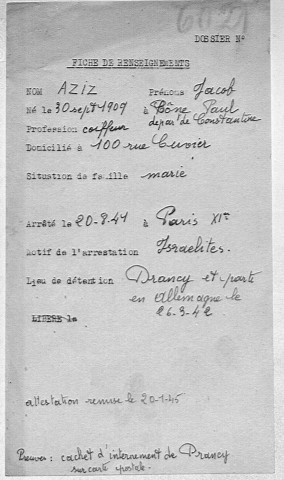 DOSSIER N°
FICHE DE RENSEIGNEMENTS
NOM AZIZ Prénoms Jacob
Paul
Né le 30 sept 1909 à Bône
départ de Constantine
Profession coiffeur
Domicilié à 100 rue Cuvier
Situation de famille marié
Arrêté le 20-8-41 à Paris XIe
Motif de l'arrestation Israélites.
Lieu de détention Drancy et parti
en Allemagne le
26-3-42
LIBERE le
attestation remise le 20-1-45
Preuves: cachet d'internement de Drancy
sur carte postale.